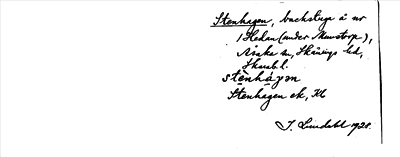 Stenhagen, backstuga å nr
1 Hedan (under Munstorp),
Åsaka sn, Skånings hd,
Skarab. l.
stènhàgən
Stenhagen ek, Kb
J. Lundahl 1928.